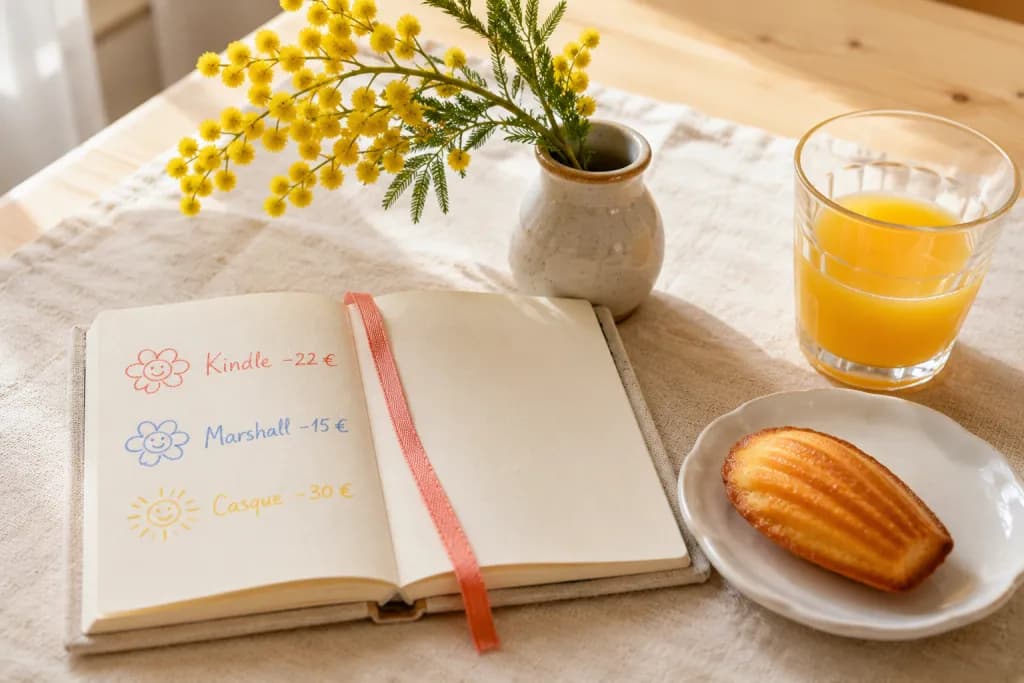 Kindle -22 €
Marshall -15 €
Casque -30 €